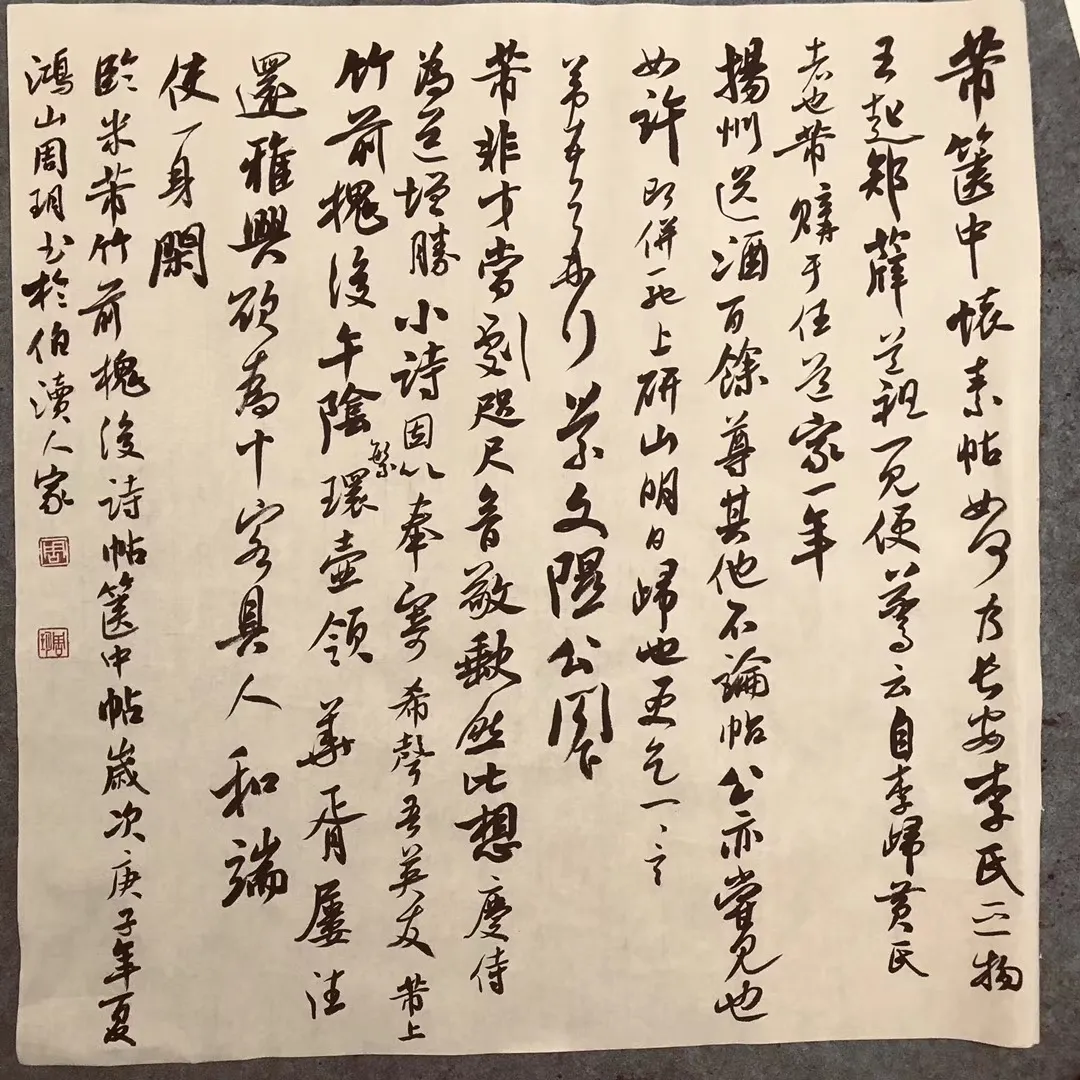 芾篋中懷素帖如何乃長安李氏之物
王起郏薛道祖一見便驚云自李歸黄氏
者也芾購于任道家一年
揚州送酒百餘尊其他不論帖公亦嘗見也
如許即併馳上研山明日歸也更乞一言
芾頓首再拜景文隰公閣下
芾非才當劇咫尺音敬缺然比想慶侍
為道增勝小詩因以奉寄希聲吾英友芾上
竹前槐後午陰繁環壺領華胥屢往
還雅興欲為十客具人和端
使一身閑
臨米芾竹前槐後詩帖篋中帖歲次庚子年夏
鴻山周玥书於伯瀆人家